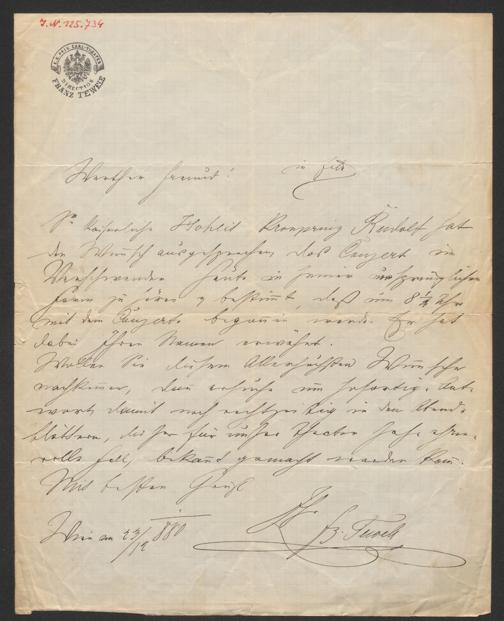 I.N. 125.734
K. K. PRIV. CARL-THEATER
DIRECTION
FRANZ TEWELE
Werther Freund! in Eile
Se kaiserliche Hoheit Kronprinz Rudolf hat
den Wunsch ausgesprochen das Conzert im
Verschwender heute in seiner ursprünglichen
Form zu hören & bestimmt, daß um 8 1/4 Uhr
mit dem Conzerte begonnen werde. Er hat
dabei Ihren Namen erwähnt.
Wollen Sie diesem Allerhöchsten Wunsche
nachkommen, dann ersuche um sofortige Ant-
wort, damit noch rechtzeitig in den Abend-
blättern, dieser für unser Theater sehr ehren-
volle Fall, bekannt gemacht werden kann.
Mit besten Gruß
Wien am 880
Fz. Tewele